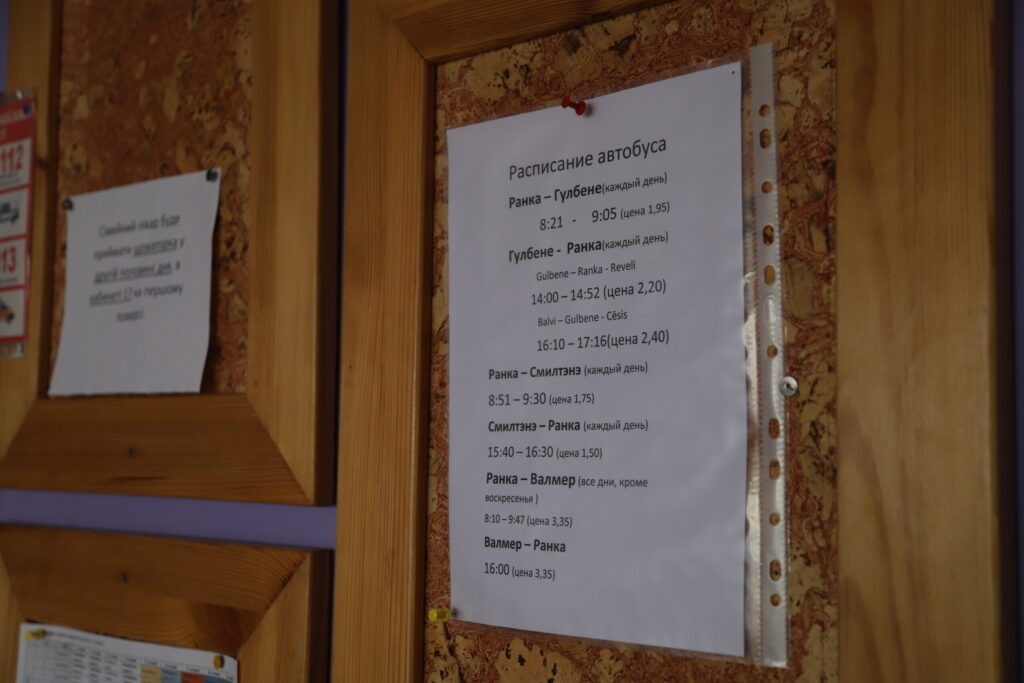 112
13
Сімейний лікар буде
приймати щовівторка у
другій половині дня, в
кабінеті 17 на першому
поверсі.
Расписание автобуса
Ранка – Гулбене(каждый день)
8:21 - 9:05 (цена 1,95)
Гулбене - Ранка(каждый день)
Gulbene – Ranka - Reveli
14:00 – 14:52 (цена 2,20)
Balvi – Gulbene - Cēsis
16:10 – 17:16(цена 2,40)
Ранка – Смилтэнэ (каждый день)
8:51 – 9:30 (цена 1,75)
Смилтэнэ – Ранка (каждый день)
15:40 – 16:30 (цена 1,50)
Ранка – Валмер (все дни, кроме
воскресенья )
8:10 – 9:47 (цена 3,35)
Валмер – Ранка
16:00 (цена 3,35)